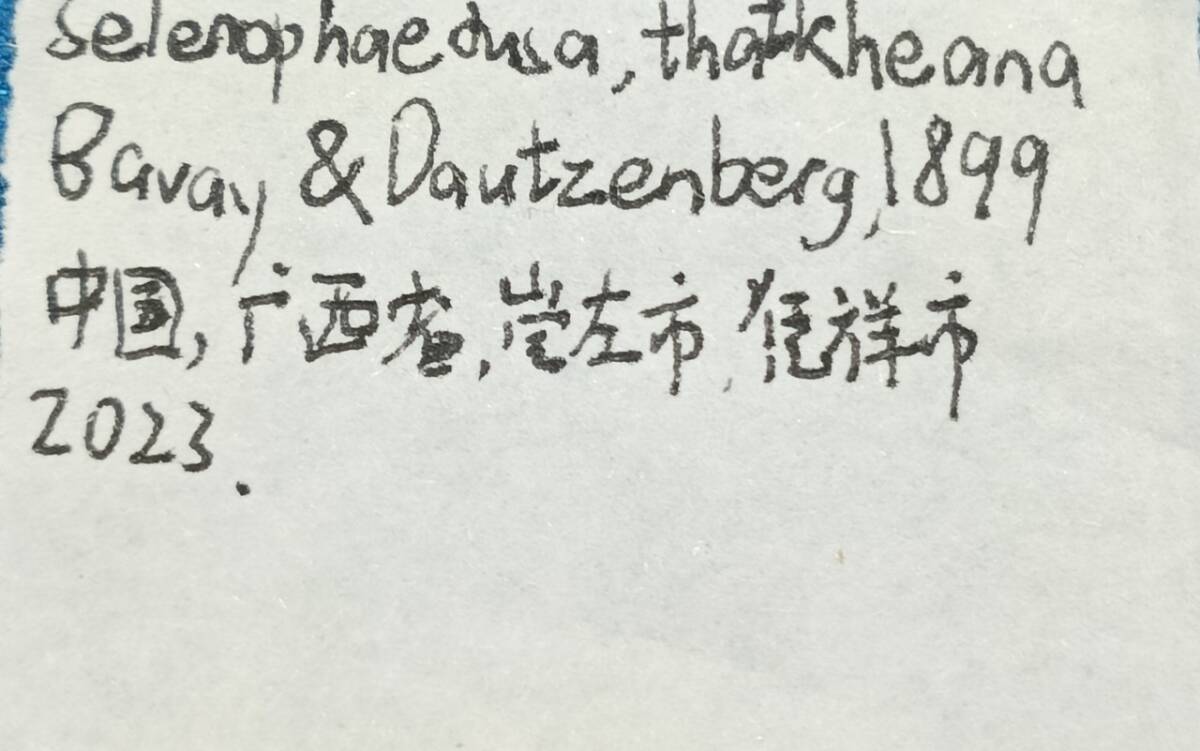 Selenophaedusa, thatkheana
Bavay & Dautzenberg, 1899
中国, 广西省, 崇左市, 凭祥市
2023.